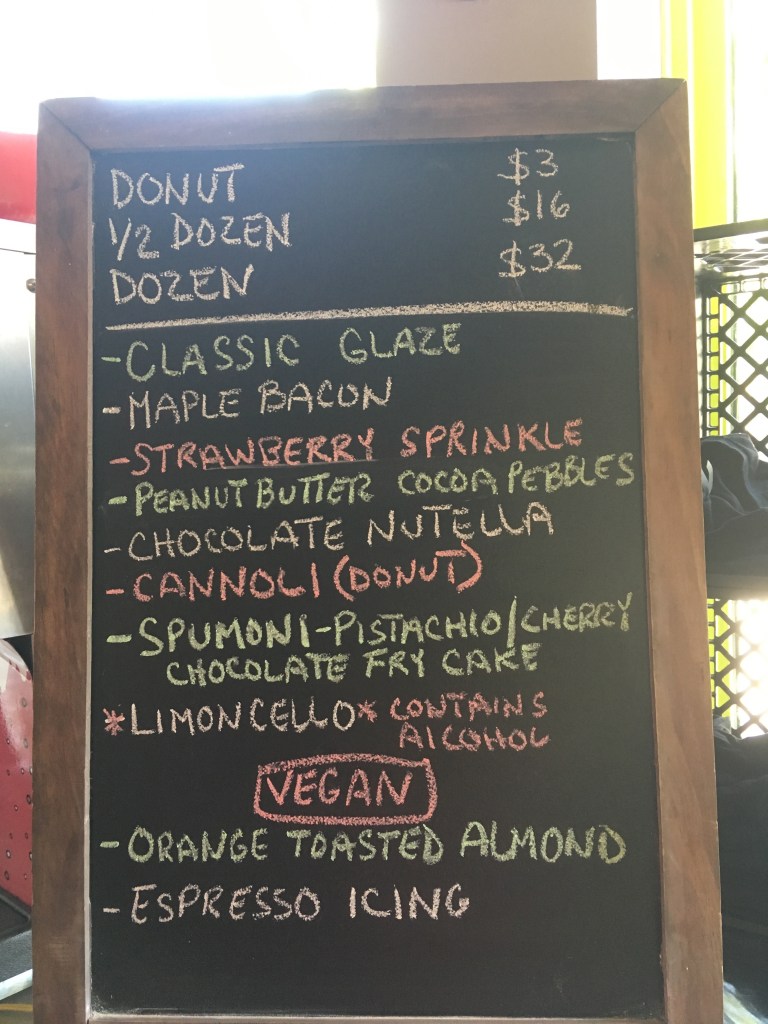 DONUT $3
1/2 DOZEN $16
DOZEN $32
-CLASSIC GLAZE
-MAPLE BACON
-STRAWBERRY SPRINKLE
-PEANUT BUTTER COCOA PEBBLES
-CHOCOLATE NUTELLA
-CANNOLI (DONUT)
-SPUMONI-PISTACHIO/CHERRY
CHOCOLATE FRY CAKE
*LIMONCELLO* CONTAINS
ALCOHOL
VEGAN
-ORANGE TOASTED ALMOND
-ESPRESSO ICING